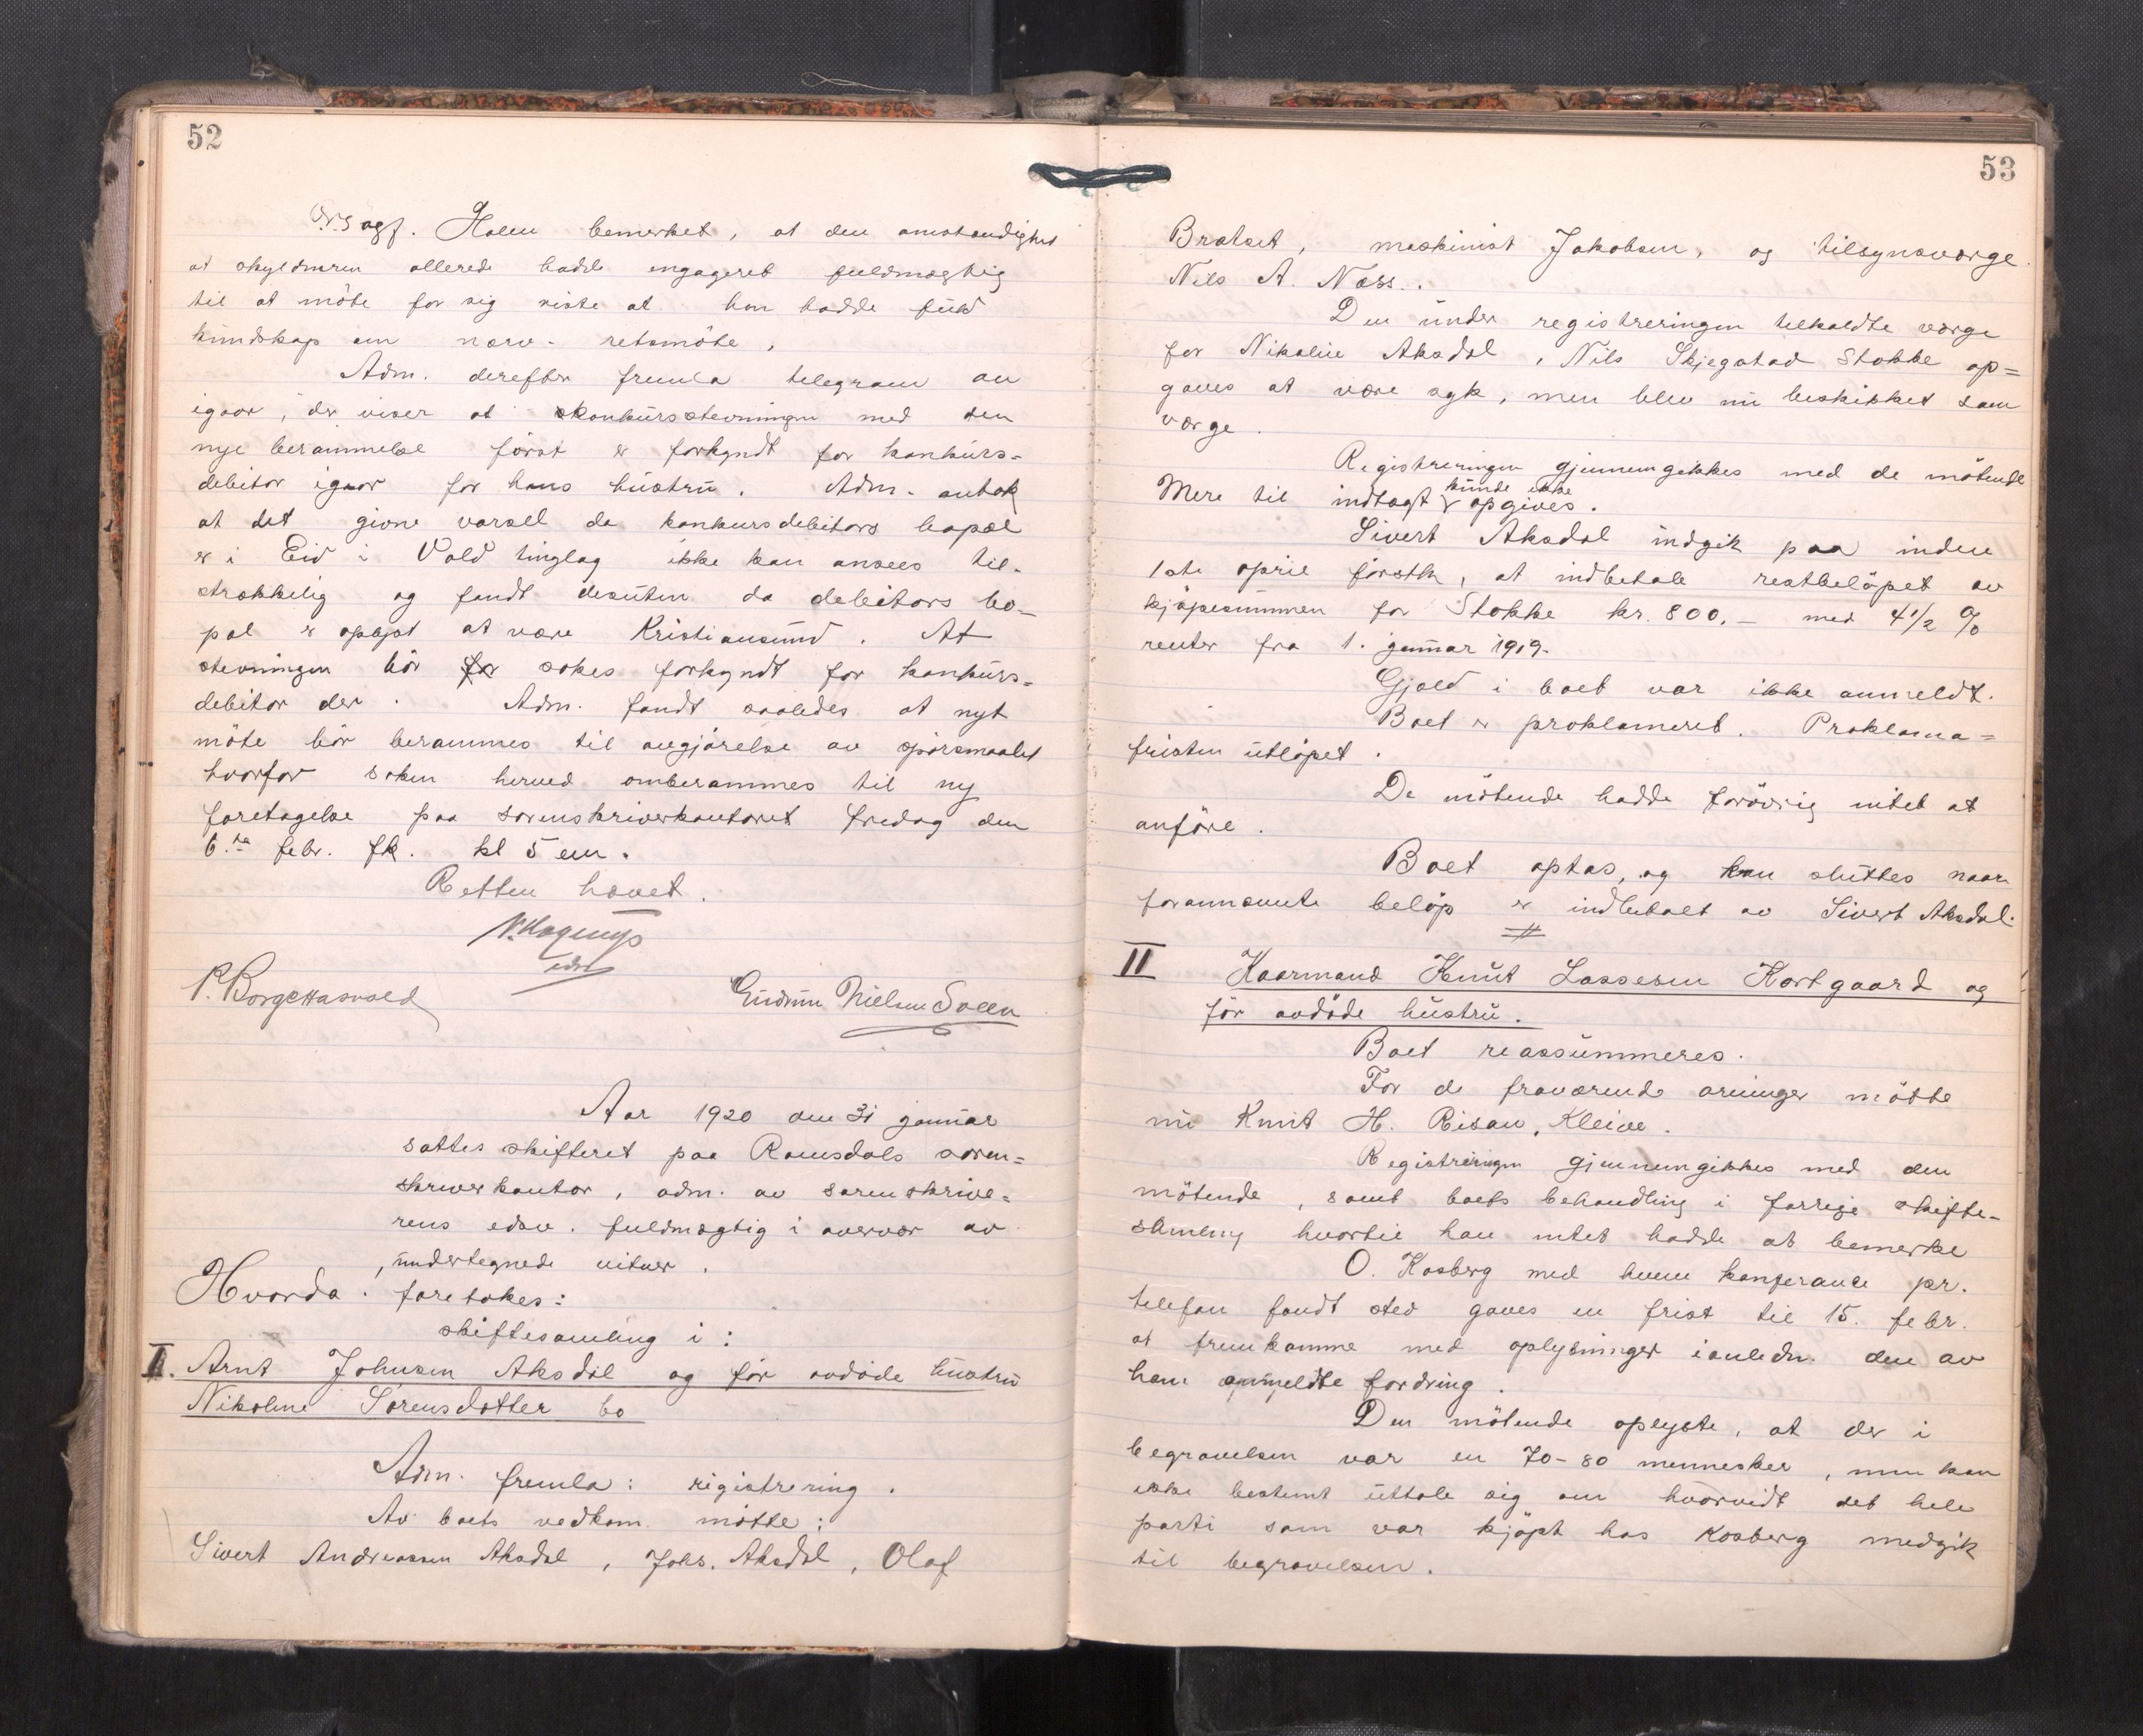 52
O.r.sagf. Holen bemerket, at den omstændighet
at skyldneren allerede hadde engageret fuldmægtig
til at möte for sig viste at han hadde fuld
kundskap om nærv. retsmöte,
Adm. derefter fremla telegram av
igaar, der viser at konkursstevningen med den
nye berammelse först er forkyndt for konkurs-
debitor igaar for hans hustru. Adm. antok
at det givne varsel da konkursdebitors bopæl
er i Eid i Vold tinglag ikke kan ansees til-
strækkelig og fandt desuten da debitors bo-
pæl er oplyst at være Kristiansund. At
stevningen bör søkes forkyndt for konkurs-
debitor der. Adm. fandt saaledes at nyt
möte bör berammes til avgjörelse av spörsmaalet
hvorfor saken herved omberammes til ny
foretagelse paa sorenskriverkontoret fredag den
6.te febr. fk. kl 5 em.
Retten hævet.
edsv
Gudrun Nielsen Sveen
Aar 1920 den 31 januar
sattes skifteret paa Romsdals soren=
skriverkontor, adm. av sorenskrive=
rens edsv. fuldmægtig i overvær av
undertegnede vitner.
Hvorda foretokes:
skiftesamling i:
I. Arnt Johnsen Aksdal og för avdöde hustru
Nikoline Sörensdotter bo
Adm. fremla: registrering.
Av boets vedkom. mötte:
Sivert Andreassen Aksdal, Johs. Aksdal, Olaf
53
Bratset, maskinist Jakobsen, og tilsynsværge
Nils A. Næss.
Den under registreringen tilkaldte værge
for Nikoline Aksdal, Nils Skjegstad Stokke op=
gaves at være syk, men blev nu beskikket som
værge.
Registreringen gjennemgikkes med de mötende
Mere til indtægt kunde ikke opgives.
Sivert Aksdal indgik paa inden
1ste april förstk, at indbetale restbelöpet av
kjöpesummen for Stokke kr. 800.- med 4 1/2 %
renter fra 1. januar 1919.
Gjæld i boet var ikke anmeldt.
Boet er proklameret. Proklama=
fristen utlöpet.
De mötende hadde forövrig intet at
anföre.
Boet optas, og kan sluttes naar
forannævnte belöp er indbetalt av Sivert Aksdal.
II Kaarmand Knut Lassesen Kortgaard og
för avdöde hustru.
Boet reassummeres.
For de fraværende arvinger mötte
nu Knut H. Risan, Kleive.
Registreringen gjennemgikkes med den
mötende, samt boets behandling i forrige skifte-
samling hvortil han intet hadde at bemerke
O. Kosberg med hvem konferance pr.
telefon fandt sted gaves en frist til 15. febr.
at fremkomme med oplysninger i anledn. den av
ham anmeldte fordring.
Den mötende oplyste, at der i
begravelsen var en 70-80 mennesker, men kan
ikke bestemt uttale sig om hvorvidt det hele
parti som var kjöpt hos Kosberg medgik
til begravelsen.